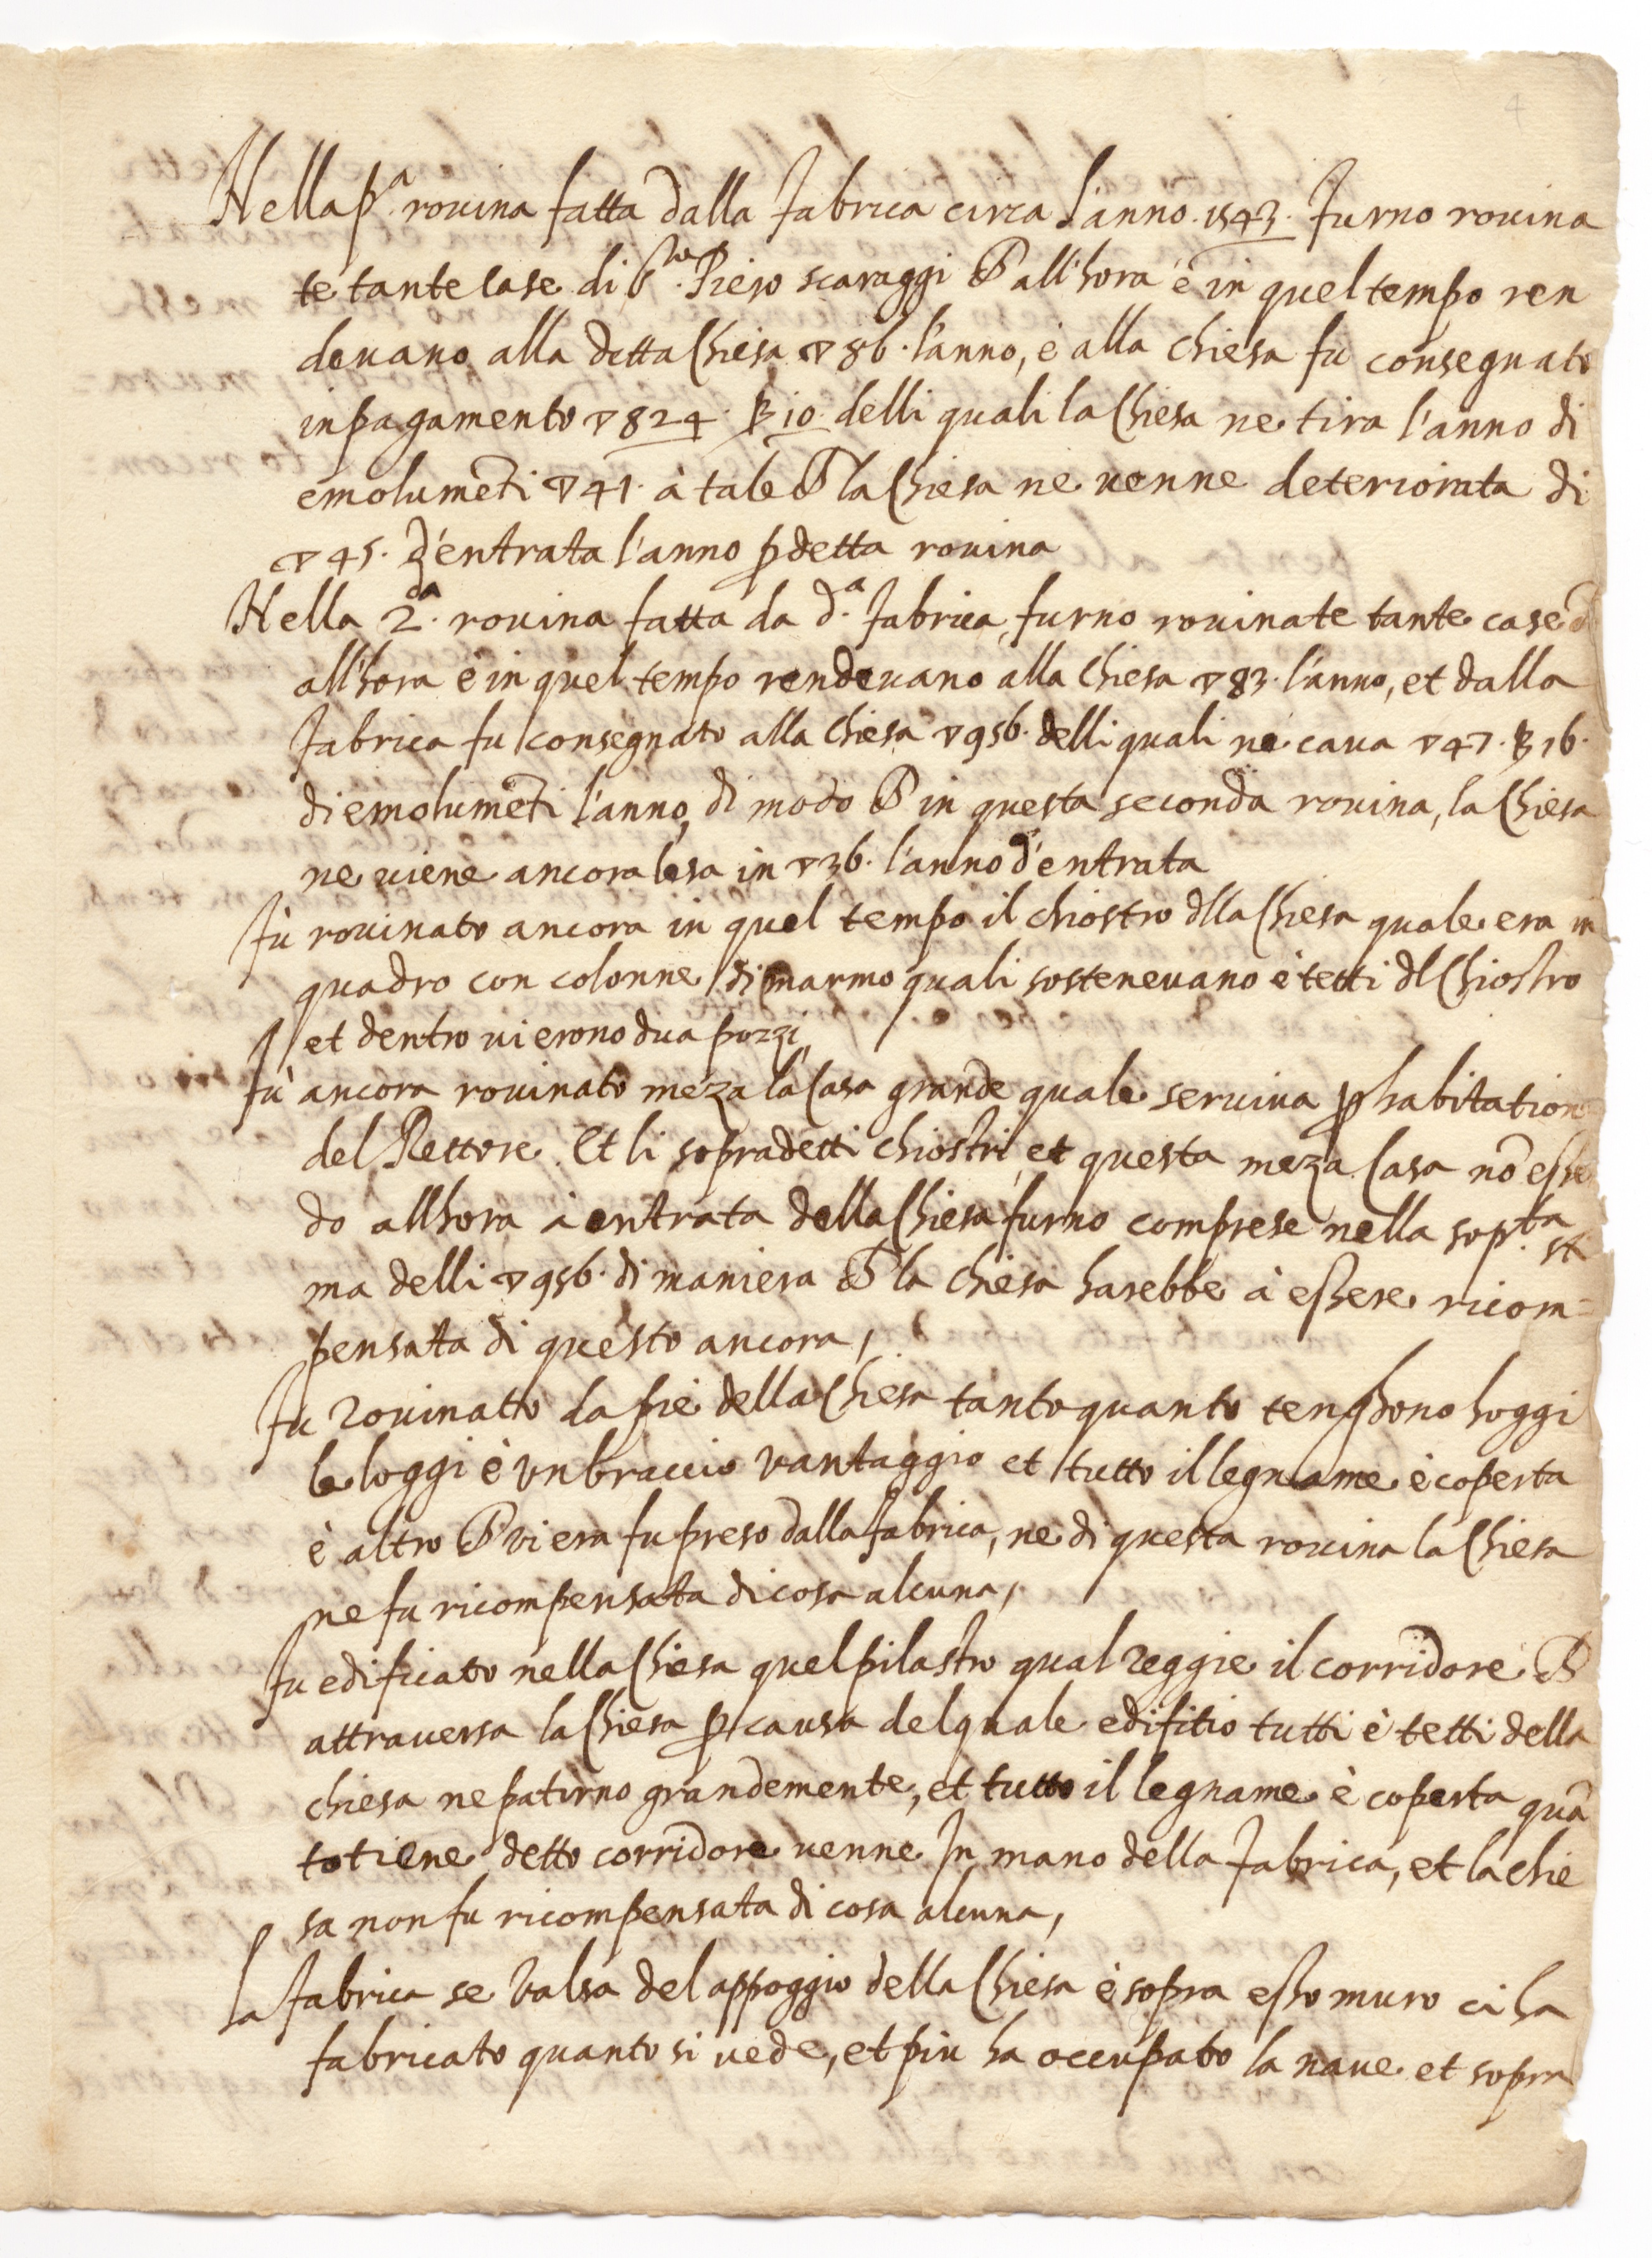 4
Nella p.ª rouina fatta dalla fabrica circa l'anno .1543. furno rouina
te tante case di S.re Piero scaraggi che all'hora è in quel tempo ren
deuano alla detta Chiesa ▽ 86. l'anno, è alla chiesa fu consegnato
in pagamento ▽ 824. ß 10 delli quali la Chiesa ne tira l'anno di
emolumēti ▽ 41. à tale che la Chiesa ne uenne deteriorata di
▽ 45. d'entrata l'anno ꝑ detta rouina
Nella 2.da rouina fatta da d.ª fabrica, furno rouinate tante case che
all'hora è in quel tempo rendeuano alla chiesa ▽ 83. l'anno, et dalla
fabrica fu consegnato alla chiesa ▽ 956. delli quali ne caua ▽ 47. ß 16.
di emolumēti l'anno, di modo che in questa seconda rouina, la Chiesa
ne uiene ancora lesa in ▽ 36. l'anno d'entrata
Fù rouinato ancora in quel tempo il chiostro dlla Chiesa quale era in
quadro con colonne di marmo quali sosteneuano è tetti dl Chiostro
et dentro ui erono dua pozzi,
Fù ancora rouinato meza la Casa grande quale seruiua ꝑ habitation
del Rettore. Et li sopradetti chiostri, et questa meza Casa nō esse
do all'hora à entrata della Chiesa furno comprese nella sop.ta su
ma delli ▽ 956. di maniera che la chiesa harebbe à essere ricom=
pensata di questo ancora,
Fu rouinatto da piè della Chiesa tanto quanto tengdono hoggi
le loggi è vn braccio vantaggio et tutto il legname è coperta
è altro che vi era fu preso dalla fabrica, ne di questa rouina la Chiesa
ne fu ricompensata di cosa alcuna,
Fu edificato nella Chiesa quel pilastro qual reggie il corridore che
attrauersa la Chiesa ꝑ causa del quale edifitio tutti è tetti della
chiesa ne patirno grandemente, et tutto il legname è coperta quā
to tiene detto corridore uenne In mano della fabrica, et la chie
sa non fu ricompensata di cosa alcuna,
La fabrica se valsa del appoggio della Chiesa è sopra esso muro ci ha
fabricato quanto si uede, et piu ha occupato la naue et sopra